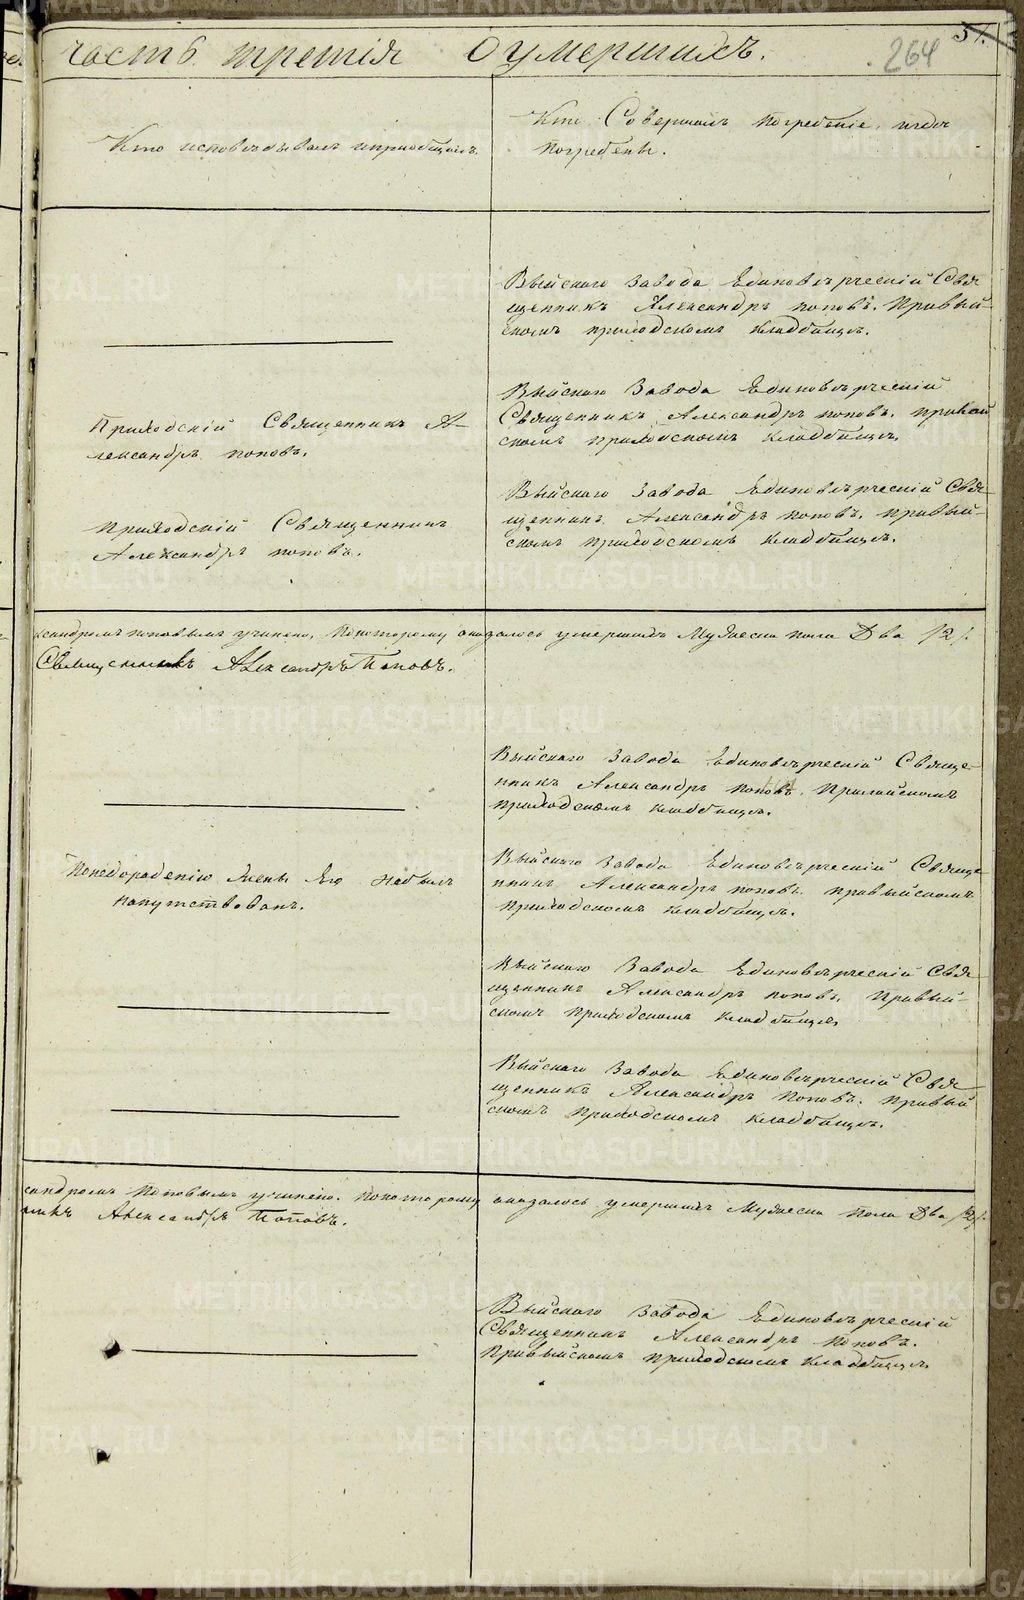 часть третія о умершихъ.
264
51.
Кто исповѣдывалъ ипріобщалъ.
Кто Совершалъ погребеніе, игдѣ
погребены.
Выйскаго завода Единовѣрческій Свя
щенникъ Александръ поповъ. Привый-
скомъ приходскомъ кладбищѣ.
Приходскій Священникъ А-
лександръ поповъ.
Выйскаго Завода Единовѣрческій
Священникъ Александръ поповъ. привый
скомъ приходскомъ кладбищѣ.
приходскій Священникъ
Александръ поповъ.
Выйскаго завода Единовѣрческій Свя
щенникъ Александръ поповъ. привый-
скомъ приходскомъ кладбищѣ.
ксандромъ поповымъ учинено, покоторому оказалось умершихъ Мужеска пола Два /2/.
Священникъ Александръ Поповъ.
Выйскаго завода Единовѣрческій Свяще-
нникъ Александръ поповъ.
приходскомъ кладбищѣ.
жены Его небылъ
напутствованъ.
Выйскаго завода Единовѣрческій Свяще
нникъ Александръ поповъ привыйскомъ
приходскомъ кладбищѣ.
Выйскаго Завода Единовѣрческій Свя
щенникъ Александръ поповъ. Привый-
скомъ приходскомъ кладбищѣ.
Выйскаго Завода Единовѣрческій Свя
щенникъ Александръ Поповъ. привый
скомъ приходскомъ кладбищѣ.
сандромъ Поповымъ учинено. покоторому оказалось умершихъ Мужеска Пола Два /2/.
никъ Александръ Поповъ.
Выйскаго завода Единовѣрческій
Священникъ Александръ Поповъ.
Привыйскомъ приходскомъ кладбищѣ
METRIKI.GASO-URAL.RU